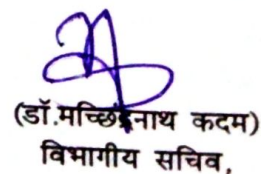 (डॉ.मच्छिंद्रनाथ कदम)
विभागीय सचिव,